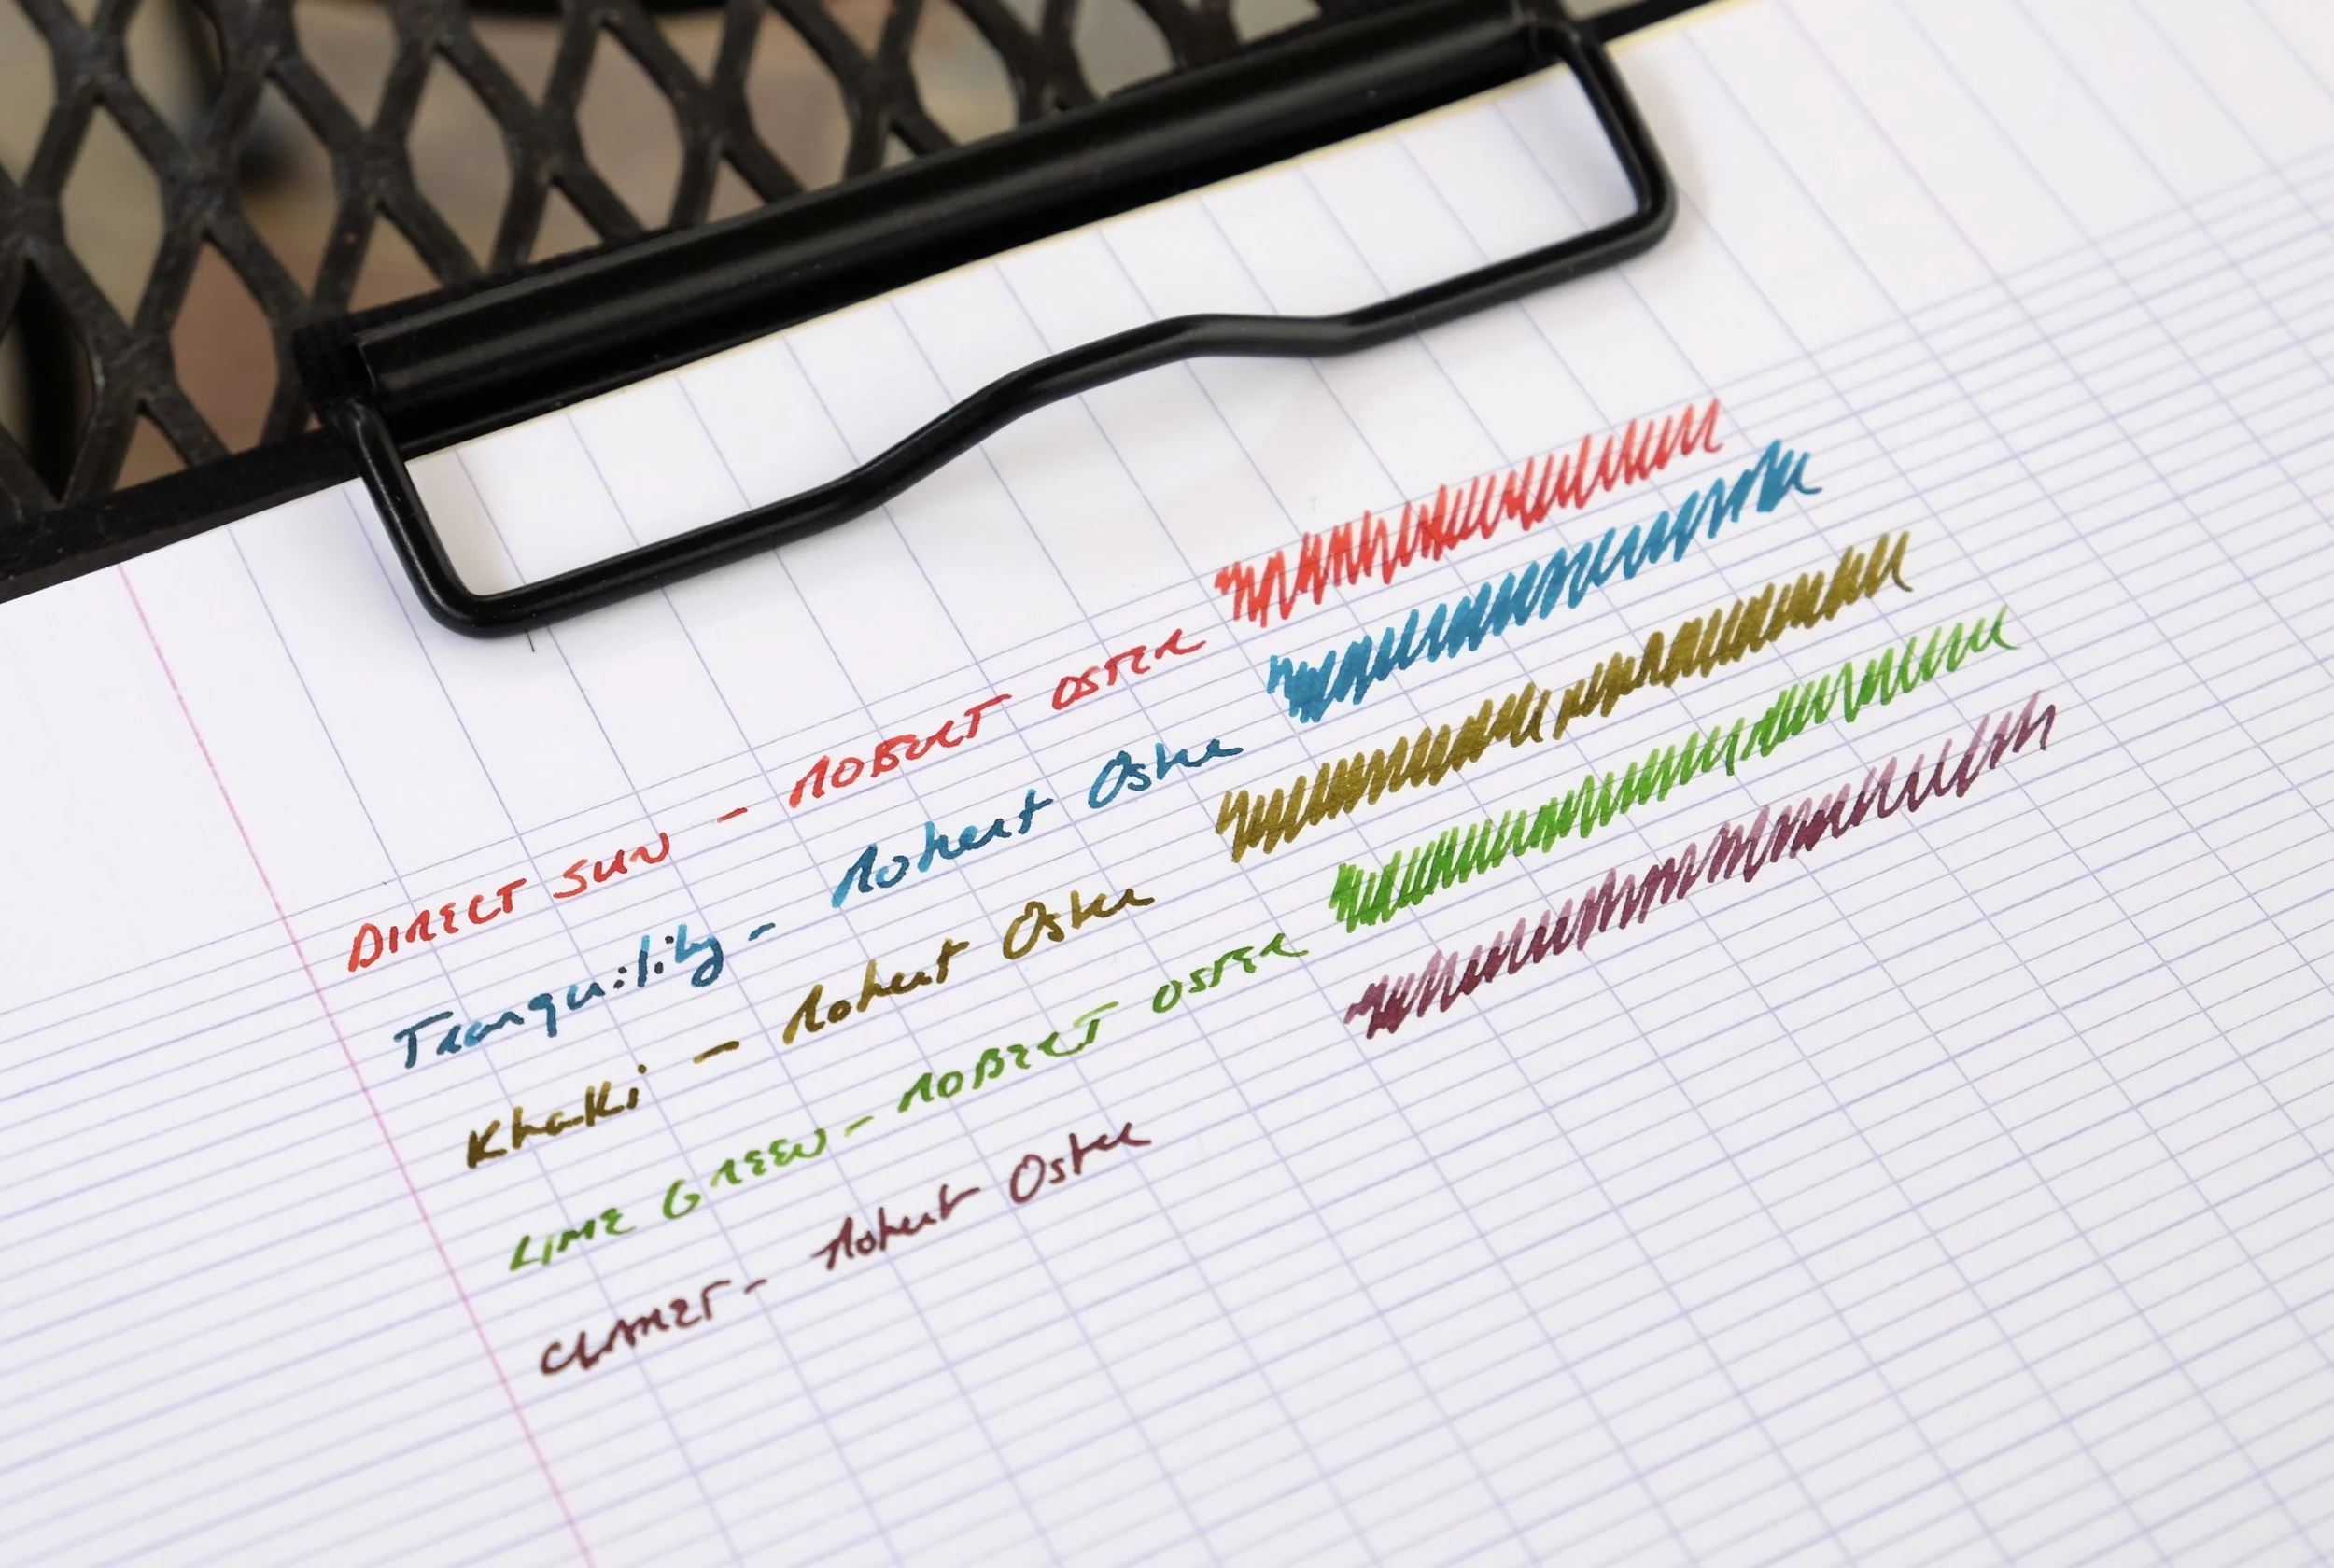 DIRECT SUN - ROBERT OSTER
Tranquility - Robert Oster
Khaki - Robert Oster
LIME GREEN - ROBERT OSTER
CLARET - Robert Oster